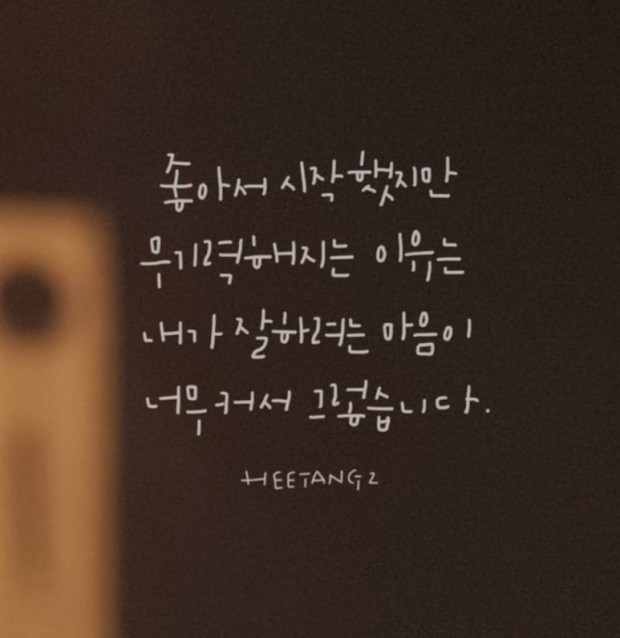 좋아서 시작했지만
무기력해지는 이유는
내가 잘하려는 마음이
너무 커서 그렇습니다.
HEETANG2